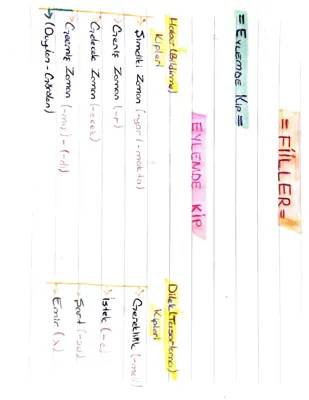 = FİİLLER =
= EYLEMDE KİP =
EYLEMDE KİP
Haber (Bildirme) Kipleri
Şimdiki Zaman (-yor/-makta)
Geniş Zaman (-r)
Gelecek Zaman (-ecek)
Geçmiş Zaman (-mış) - (-dı)
(Duyulan - Görülen)
Dilek (Tasarlama) Kipleri
Gereklilik (-meli)
İstek (-e)
Şart (-sa)
Emir (x)